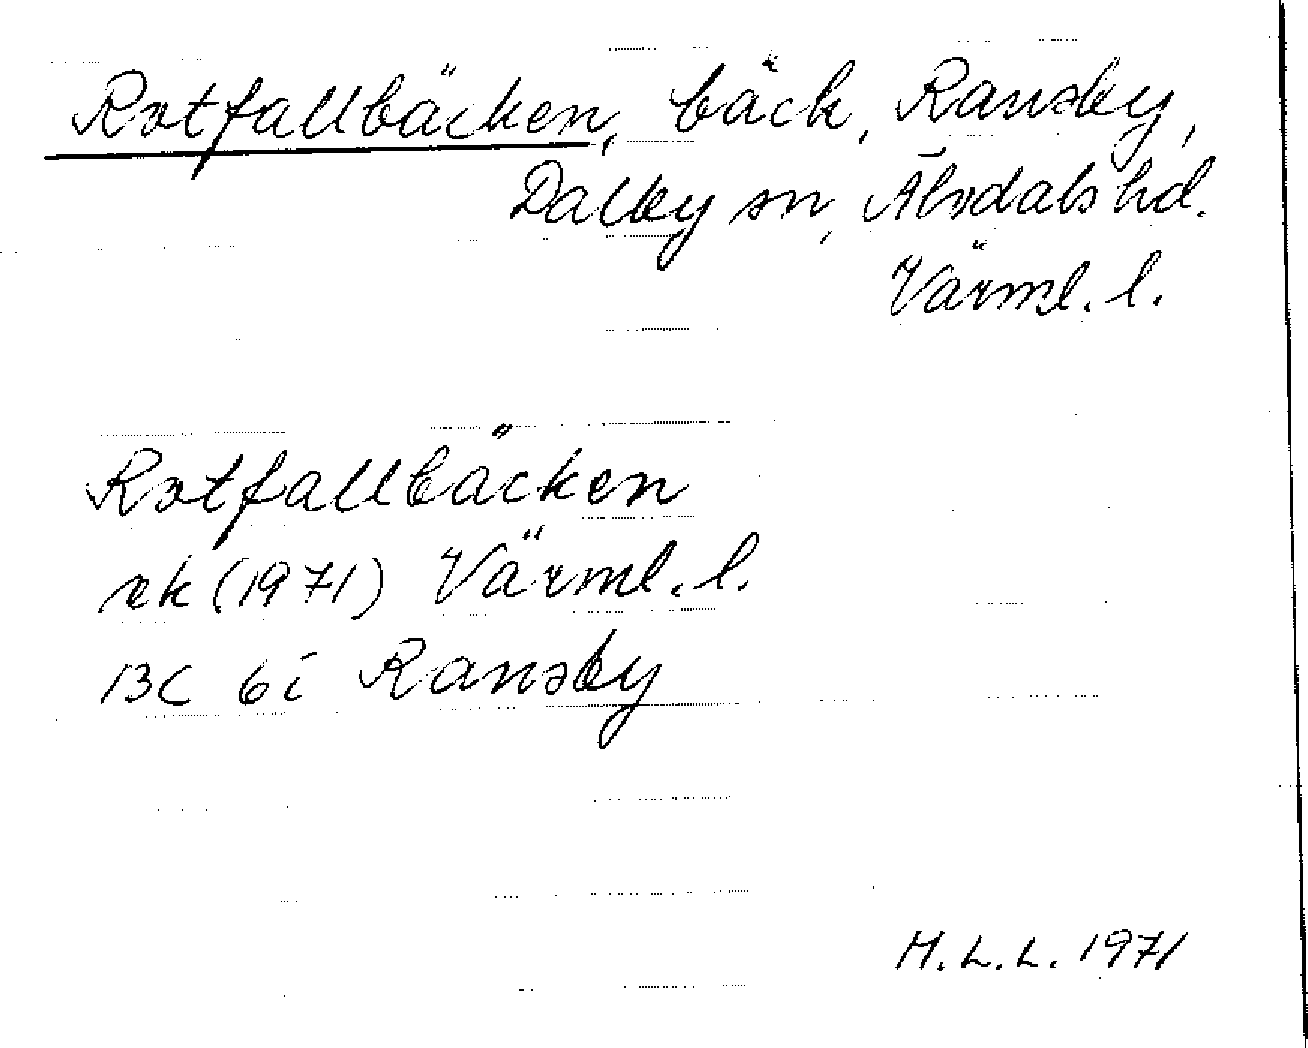 Rotfallbäcken, bäck, Ransby,
Dalby sn, Älvdals hd.
Värml. l.
Rotfallbäcken
rk (1971) Värml. l.
13C 6i Ransby
H.L.L. 1971